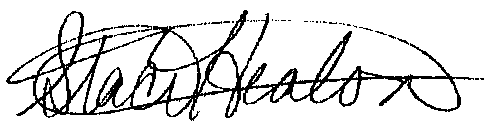 Staci Healon